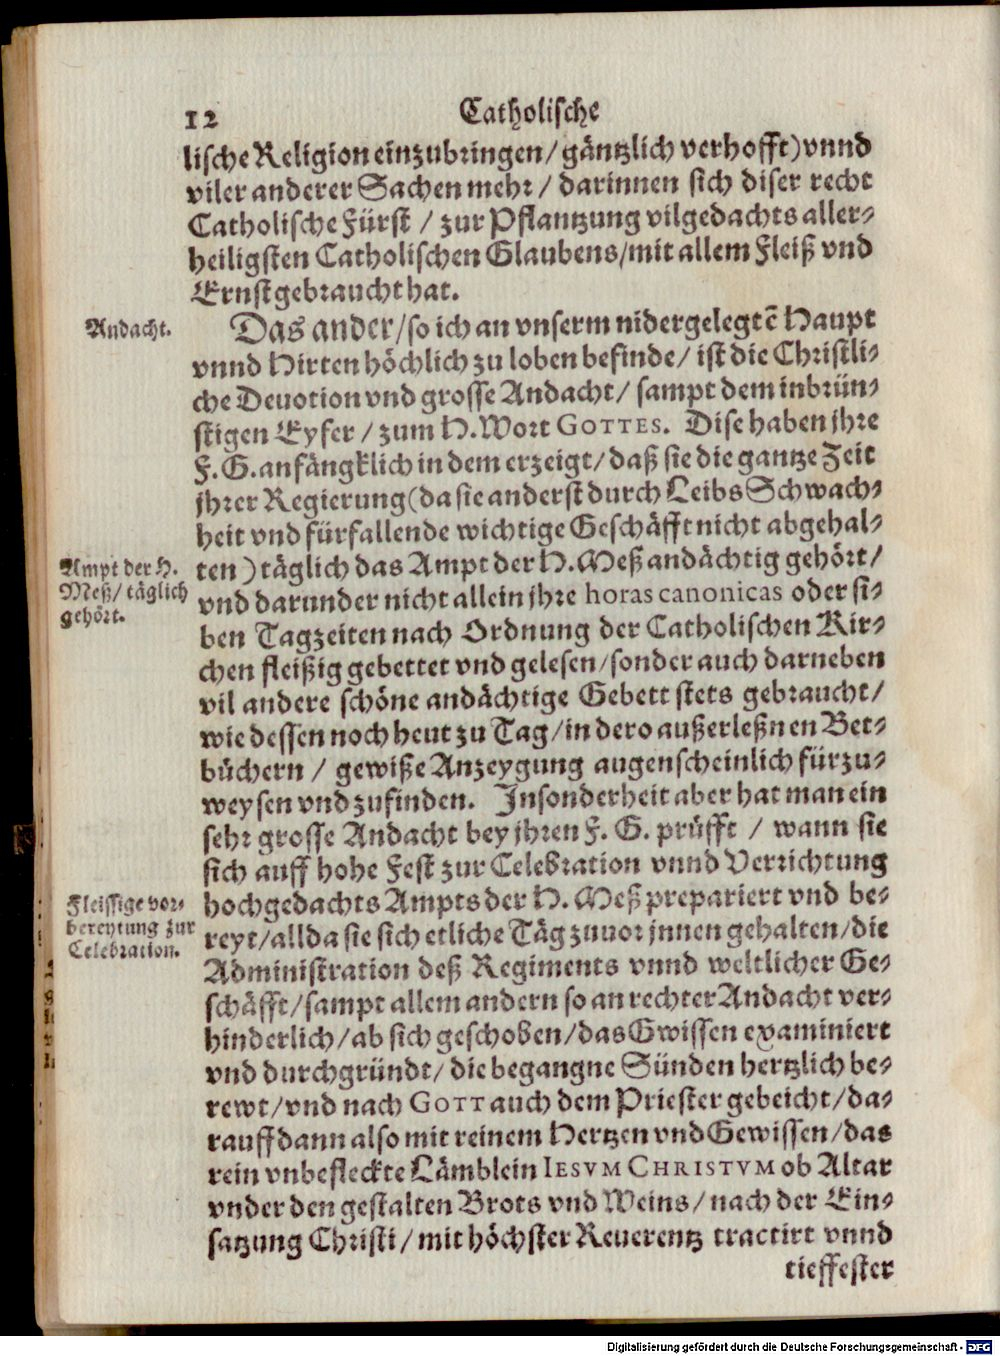 12
Catholische
lische Religion einzubringen / gäntzlich verhofft) vnnd
viler anderer Sachen mehr / darinnen sich diser recht
Catholische Fürst / zur Pflantzung vilgedachts aller-
heiligsten Catholischen Glaubens / mit allem Fleiß vnd
Ernst gebraucht hat.
Andacht.
Das ander / so ich an vnserm nidergelegtē Haupt
vnnd Hirten höchlich zu loben befinde / ist die Christli-
che Deuotion vnd grosse Andacht / sampt dem inbrün-
stigen Eyfer / zum H. Wort GOTTES. Dise haben jhre
F. G. anfängklich in dem erzeigt / daß sie die gantze Zeit
jhrer Regierung (da sie anderst durch Leibs Schwach-
heit vnd fürfallende wichtige Geschäfft nicht abgehal-
Ampt der H.
Meß / täglich
gehört.
ten) täglich das Ampt der H. Meß andächtig gehört /
vnd darunder nicht allein jhre horas canonicas oder si-
ben Tagzeiten nach Ordnung der Catholischen Kir-
chen fleißig gebettet vnd gelesen / sonder auch darneben
vil andere schöne andächtige Gebett stets gebraucht /
wie dessen noch heut zu Tag / in dero außerleßnen Bet-
büchern / gewiße Anzeygung augenscheinlich fürzu-
weysen vnd zufinden. Insonderheit aber hat man ein
sehr grosse Andacht bey jhren F. G. prüfft / wann sie
sich auff hohe Fest zur Celebration vnnd Verrichtung
Fleissige vor-
bereytung zur
Celebration.
hochgedachts Ampts der H. Meß prepariert vnd be-
reyt / allda sie sich etliche Täg zuuor jnnen gehalten / die
Administration deß Regiments vnnd weltlicher Ge-
schäfft / sampt allem andern so an rechter Andacht ver-
hinderlich / ab sich geschoben / das Gwissen examiniert
vnd durchgründt / die begangne Sünden hertzlich be-
rewt / vnd nach GOTT auch dem Priester gebeicht / da-
rauff dann also mit reinem Hertzen vnd Gewissen / das
rein vnbefleckte Lämblein IESVM CHRISTVM ob Altar
vnder den gestalten Brots vnd Weins / nach der Ein-
satzung Christi / mit höchster Reuerentz tractirt vnnd
tieffester
Digitalisierung gefördert durch die Deutsche Forschungsgemeinschaft - DFG